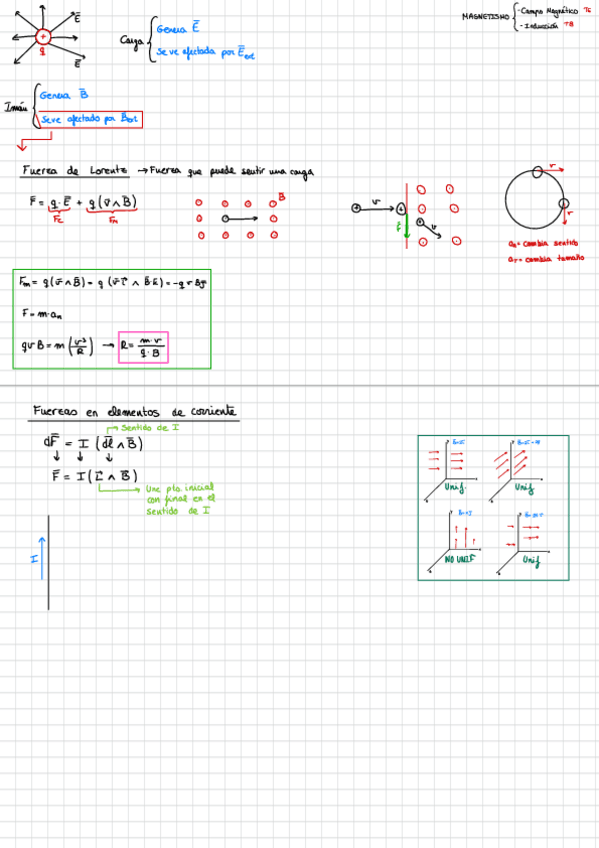 E
+
q
E
Carga
Genera E
Se ve afectada por Eext
MAGNETISMO
- Campo Magnético T6
- Inducción T8
Imán
Genera B
Se ve afectado por Bext
Fuerza de Lorentz → Fuerza que puede sentir una carga
F = q·E + q(v∧B)
Fe Fm
B
v
F
v
v
v
an = cambia sentido
aT = cambia tamaño
F = m·an
qvB = m (v²/R) → R = m·v / q·B
Fuerzas en elementos de corriente
Sentido de I
dF = I (dl ∧ B)
F = I (L ∧ B)
Une pto. inicial
con final en el
sentido de I
I
Unif
Unif
NO UNIF
Unif